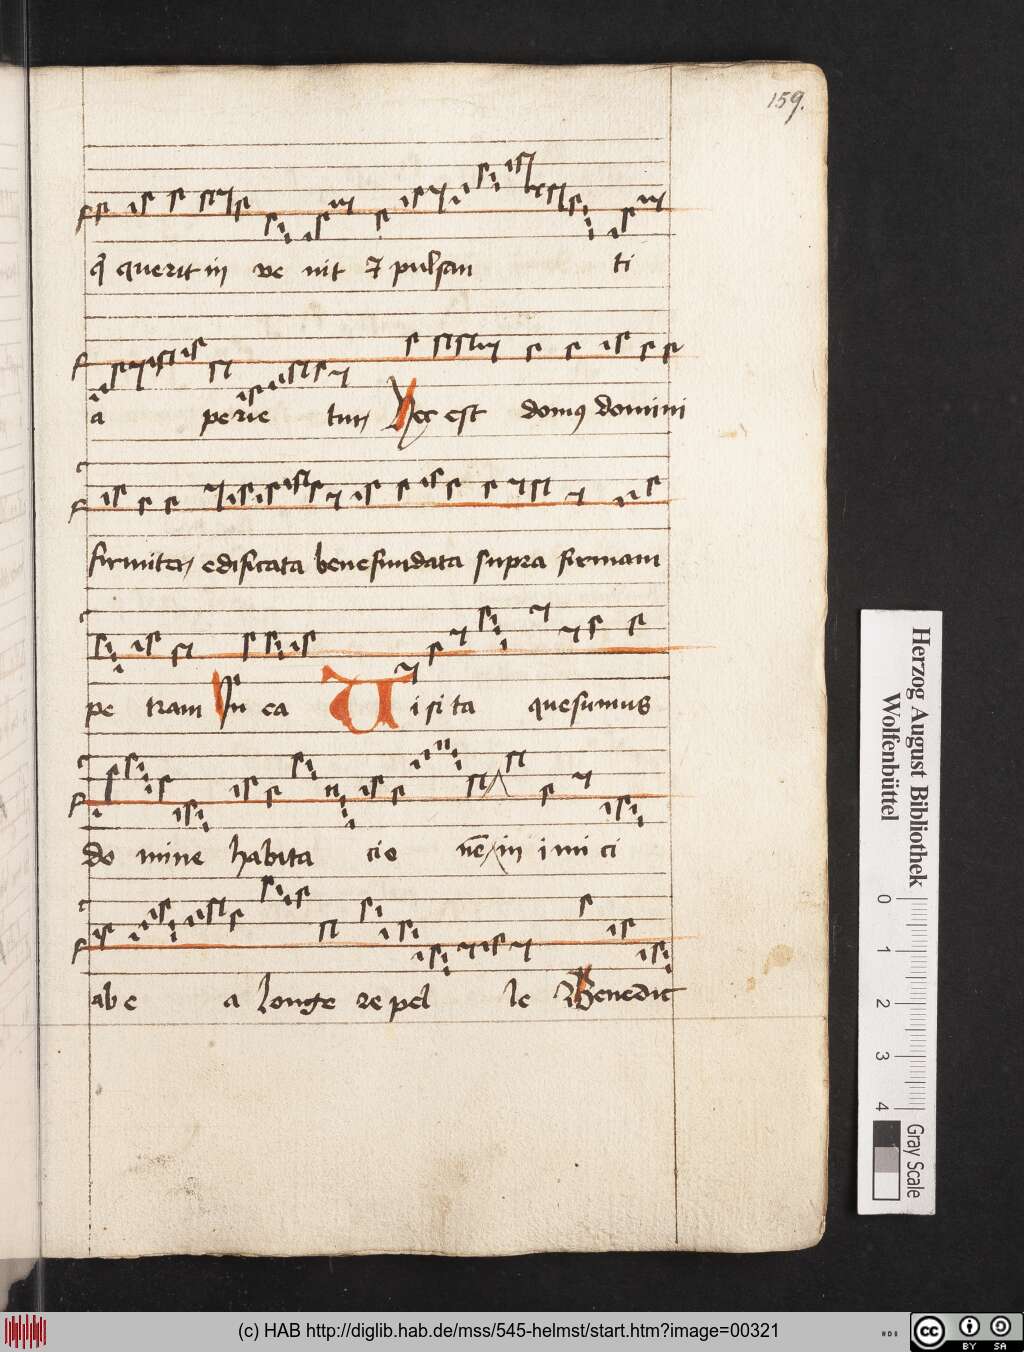 159.
q̄ querit in ve nit ⁊ pulsan ti
a perie tur Hec est domꝰ domini
firmiter edificata bene fundata supra firmam
pe tram In ea Uisita quesumus
do mine habita cio nē in imi ci
ab e a longe re pel le Benedict
Herzog August Bibliothek
Wolfenbüttel
0 1 2 3 4
Gray Scale
(c) HAB http://diglib.hab.de/mss/545-helmst/start.htm?image=00321
cc BY SA